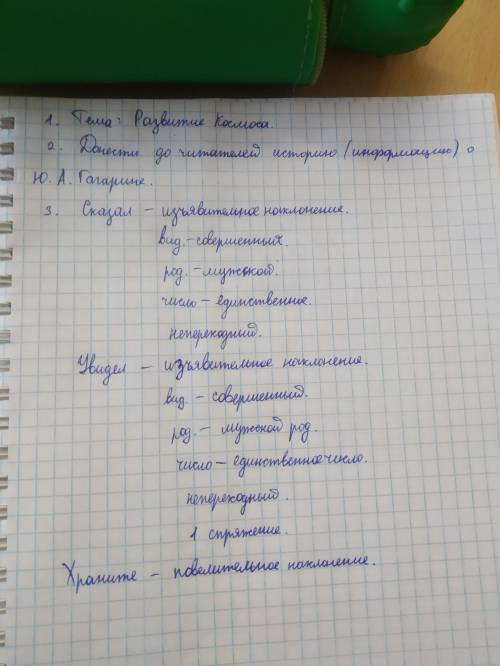 1. Тема: Развитие Космоса.
2. Донести до читателей историю (информацию) о
Ю. А. Гагарине.
3. Сказал – изъявительное наклонение.
вид. – совершенных.
род. – мужской.
число – единственное.
непереходный.
Увидел – изъявительное наклонение.
вид. – совершенный.
род. – мужской род.
число – единственное число.
непереходный.
1 спряжение.
Храните – повелительное наклонение.